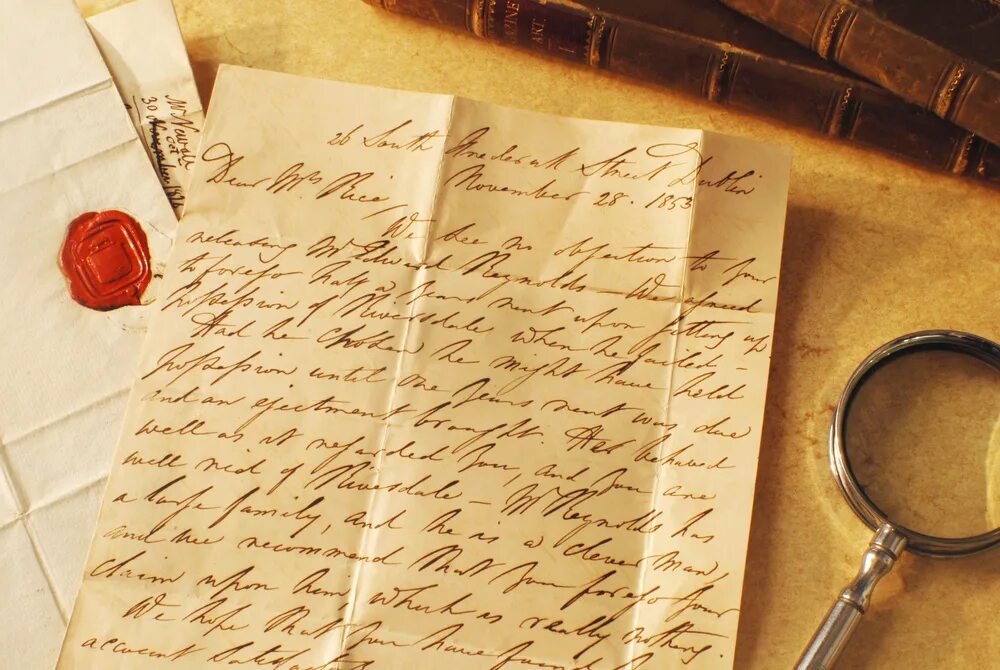 Mr
30 November
26 South Frederick Street Dublin
November 28. 1853
Dear Mrs Rice,
We see no objection to your
releasing Mr Edward Reynolds — We agreed
to forego half a years rent upon getting up
possession of Riversdale when he failed —
Had he chosen he might have held
possession until the years rent was due
and an ejectment brought. He behaved
well as it regarded you, and you are
well rid of Riversdale — Mr Reynolds has
a large family, and he is a clever man,
and we recommend that you forego your
claim upon him, which is really nothing.
We hope that you have found
account